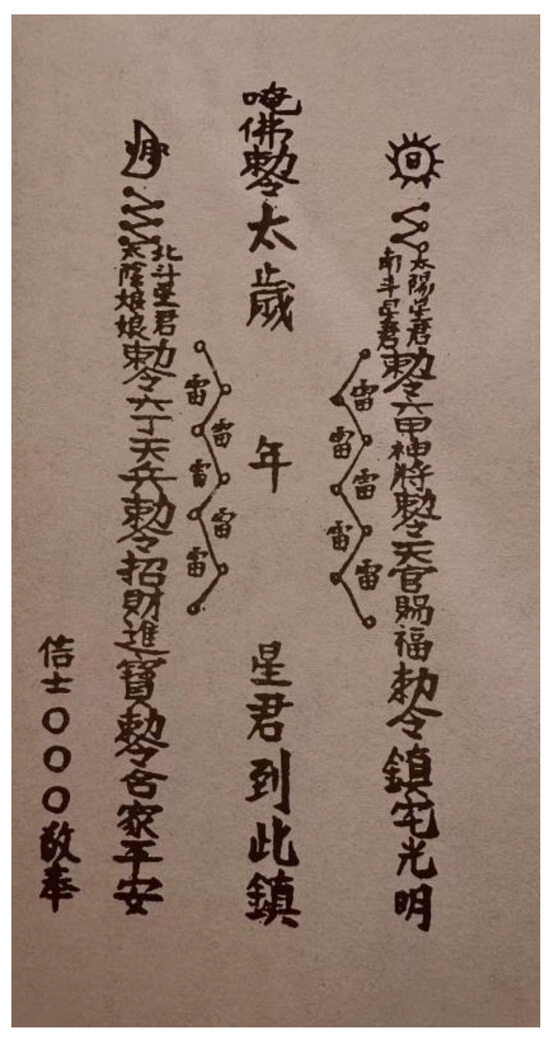 日
太陽星君
南斗星君
勅令六甲神將勅令天官賜福勅令鎮宅光明
雷
雷
雷
雷
雷
唵佛勅令太歲
年
星君到此鎮
雷
雷
雷
雷
雷
月
北斗星君
太陰娘娘
勅令六丁天兵勅令招財進寶勅令合家平安
信士〇〇〇敬奉